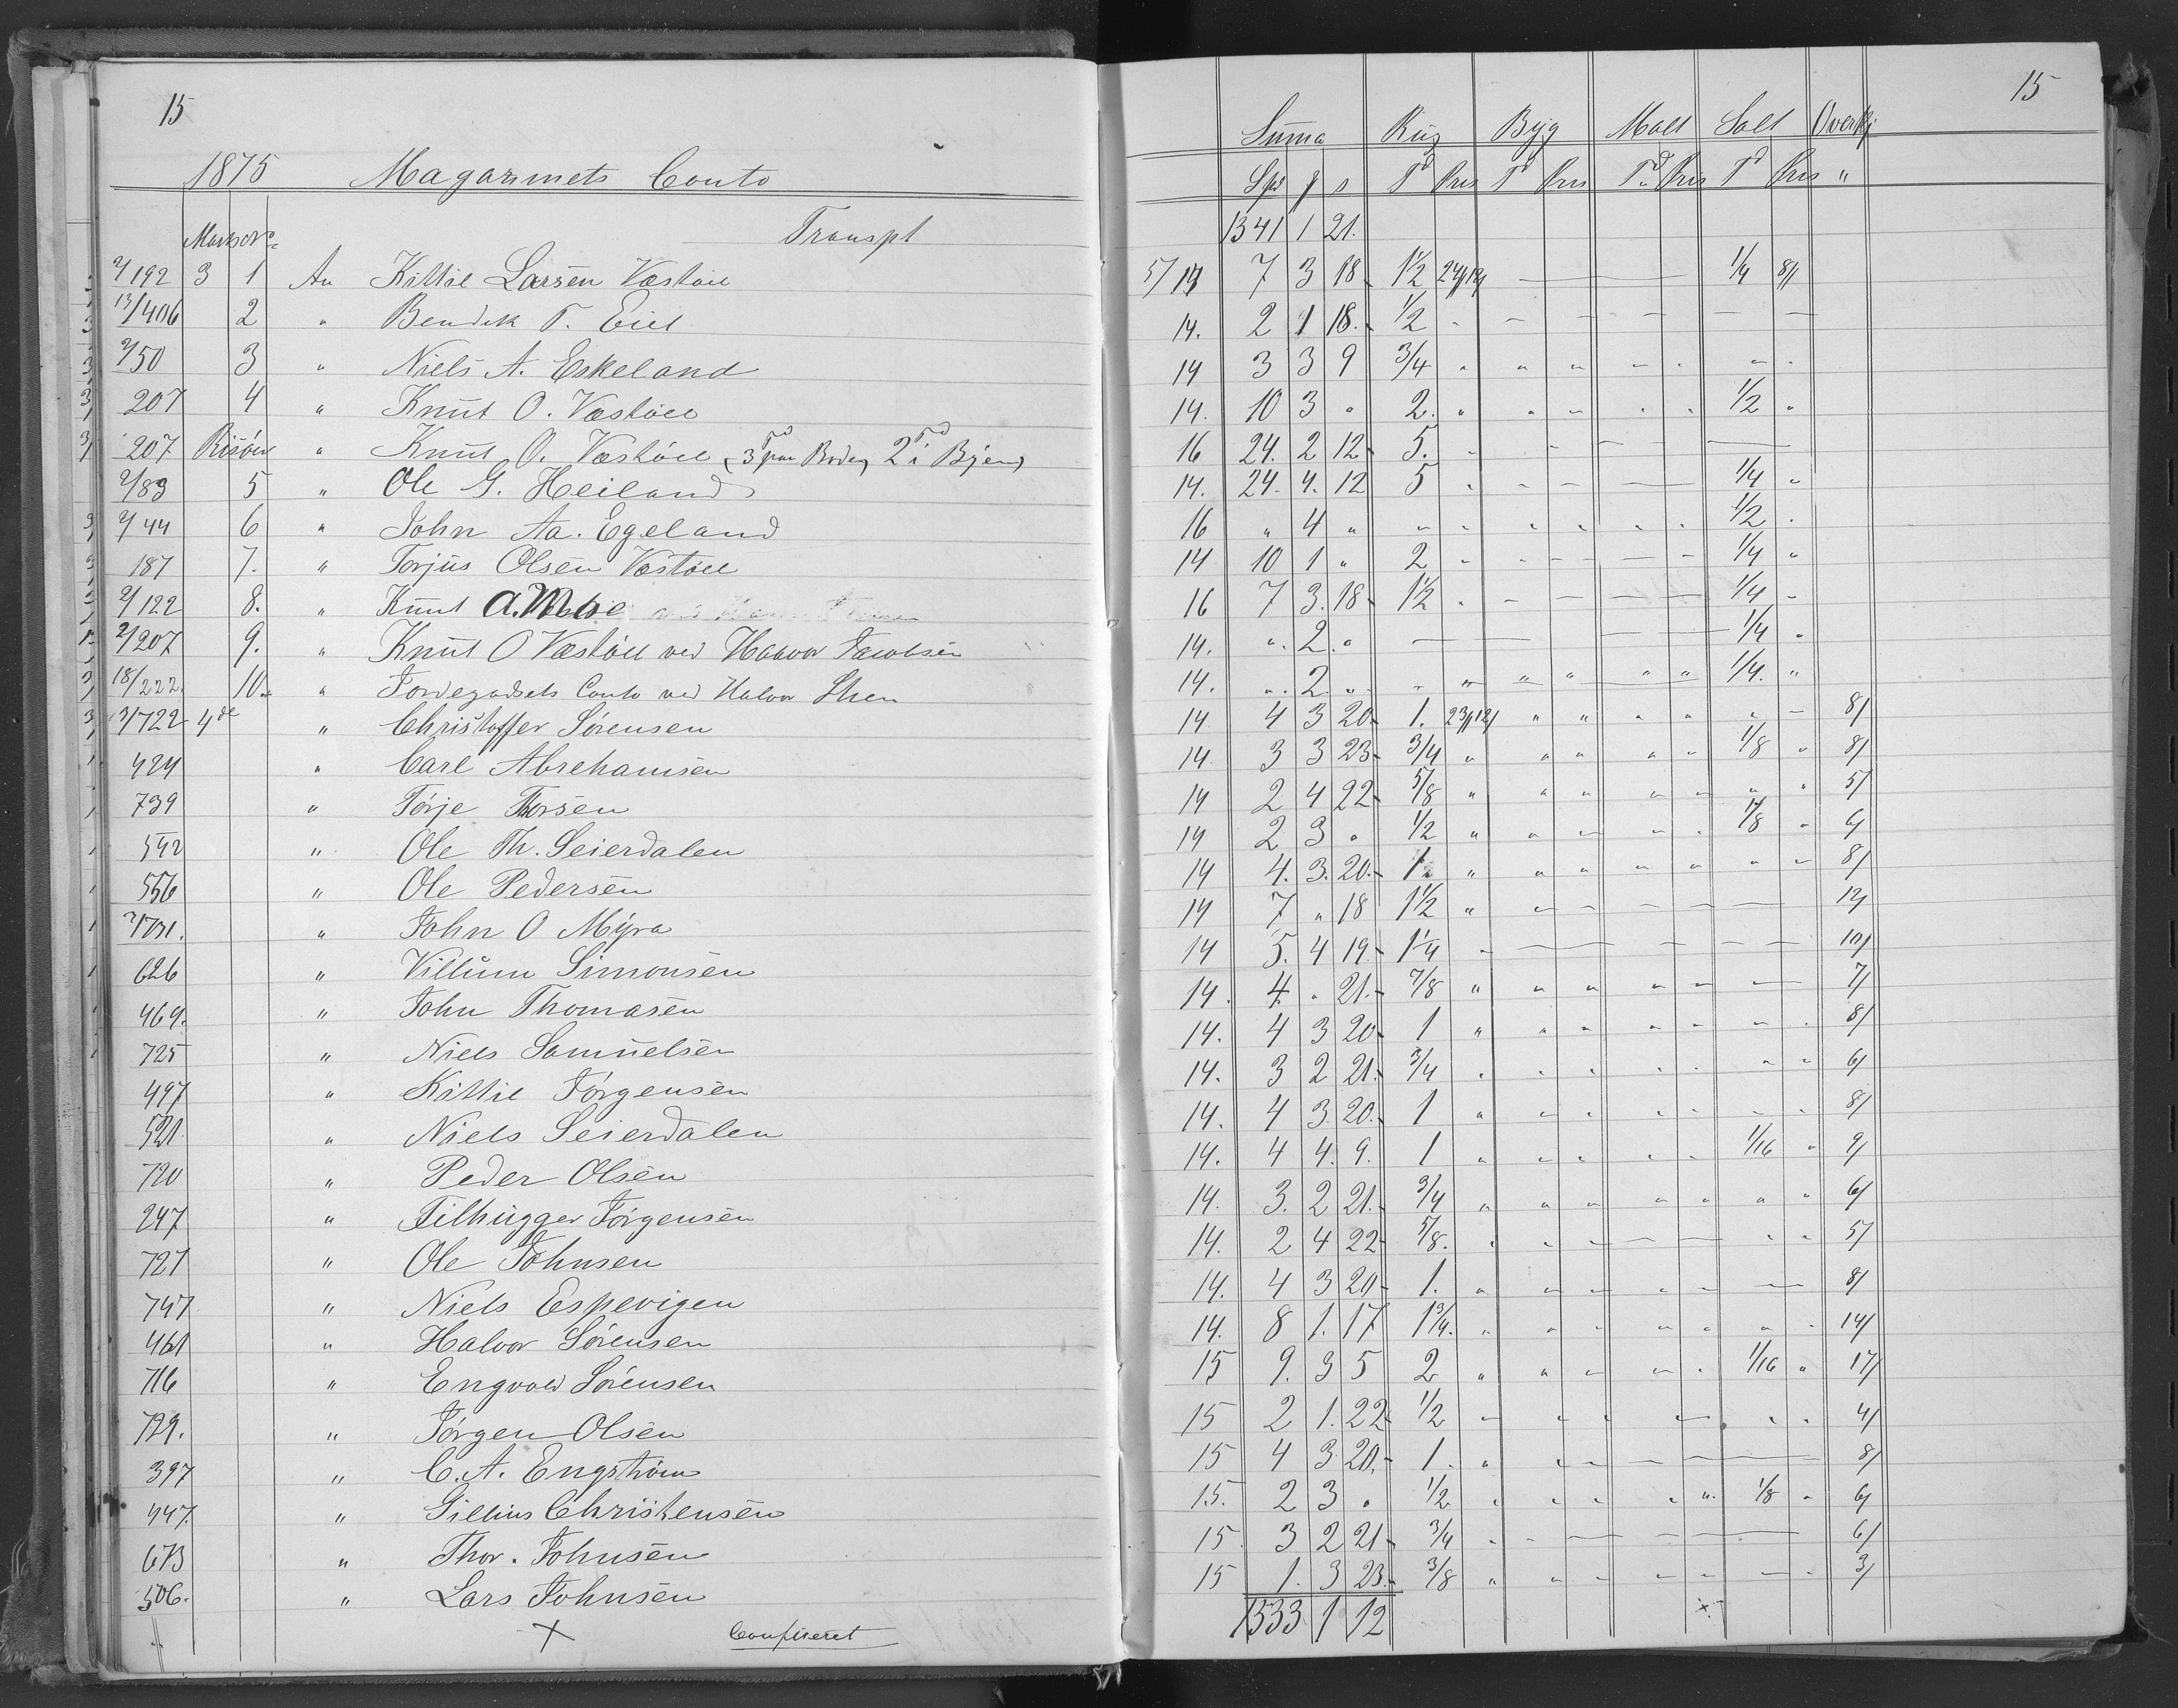 15
1875 Magazinets Conto
Marks No
Transpt
2/192 3 1 An Kittil Larsen Væstøll
13/406 2 " Bendik T. Eiel
2/50 3 " Niels A. Eskeland
207 4 " Knut O. Væstøll
207 Risøer " Knut O. Væstøll (3 Td paa Boden, 2 Td i Byen)
2/83 5 " Ole G. Heiland
2/44 6 " John Aa. Egeland
187 7. " Torjus Olsen Væstøll
2/122 8. " Knut A.
2/207 9. " Knut O Væstøll ved Halvor Jacobsen
18/222 10. " Jordegodsets Conto ved Halvor Steen
3/722 4de " Christoffer Sørensen
424 " Carl Abrehamsen
739 " Tørje Thorsen
542 " Ole Th. Seierdalen
556 " Ole Pedersen
2/731. " John O Myra
626 " Villum Simonsen
469. " John Thomasen
725 " Niels Samuelsen
497 " Kittil Jørgensen
521 " Niels Seierdalen
720 " Peder Olsen
247 " Filhugger Jørgensen
721 " Ole Johnsen
747 " Niels Espevigen
461 " Halvor Sørensen
716 " Engvald Sørensen
729. " Jørgen Olsen
397 " C. A. Engstrøm
447. " Gillius Christensen
673 " Thor. Johnsen
506. " Lars Johnsen
+ Confereret
15
Suma Rug Byg Malt Salt Overkj
Spd ʒ s Td Pris Td Pris Td Pris Td Pris "
1341 1 21.
5/14 7 3 18 1 1/2 24/12/ 1/4 8/
14. 2 1 18. 1/2
14 3 3 9 3/4 "
14. 10 3 " 2. " 1/2 "
16 24. 2 12 5.
14. 24. 4. 12 5 " 1/4 "
16 " 4 " 1/2 "
14 10 1 " 2 " 1/4 "
16 7 3. 18 1 1/2 " 1/4 "
14. " 2. " 1/4 "
14. " 2. " 1/4. "
14 4 3 20 1. 23/12/ 8/
14. 3 3 23 3/4 " 1/8 " 8/
14 2 4 22 5/8 " 5/
14 2 3 " 1/2 " 1/8 " 6/
14 4. 3. 20. 1. " 8/
14 7 " 18 1 1/2 " 12/
14 5. 4 19 1 1/4 10/
14. 4. " 21. 7/8 " 7/
14. 4 3 20 1 " 8/
14. 3 2 21. 3/4 " 6/
14. 4 3. 20. 1 " 8/
14. 4 4. 9. 1 " 1/16 " 9/
14. 3. 2 21. 3/4 " 6/
14. 2 4 22 5/8. " 5/
14. 4 3 20 1. " 8/
14. 8 1. 17 1 3/4. " 14/
15 9. 3 5 2 " 1/16 " 17/
15 2 1. 22 1/2 4/
15 4 3 20. 1. " 8/
15. 2 3 " 1/2 " 1/8 " 6/
15. 3 2 21 3/4 " 6/
15 1. 3 23. 3/8 " 3/
1533 1 12